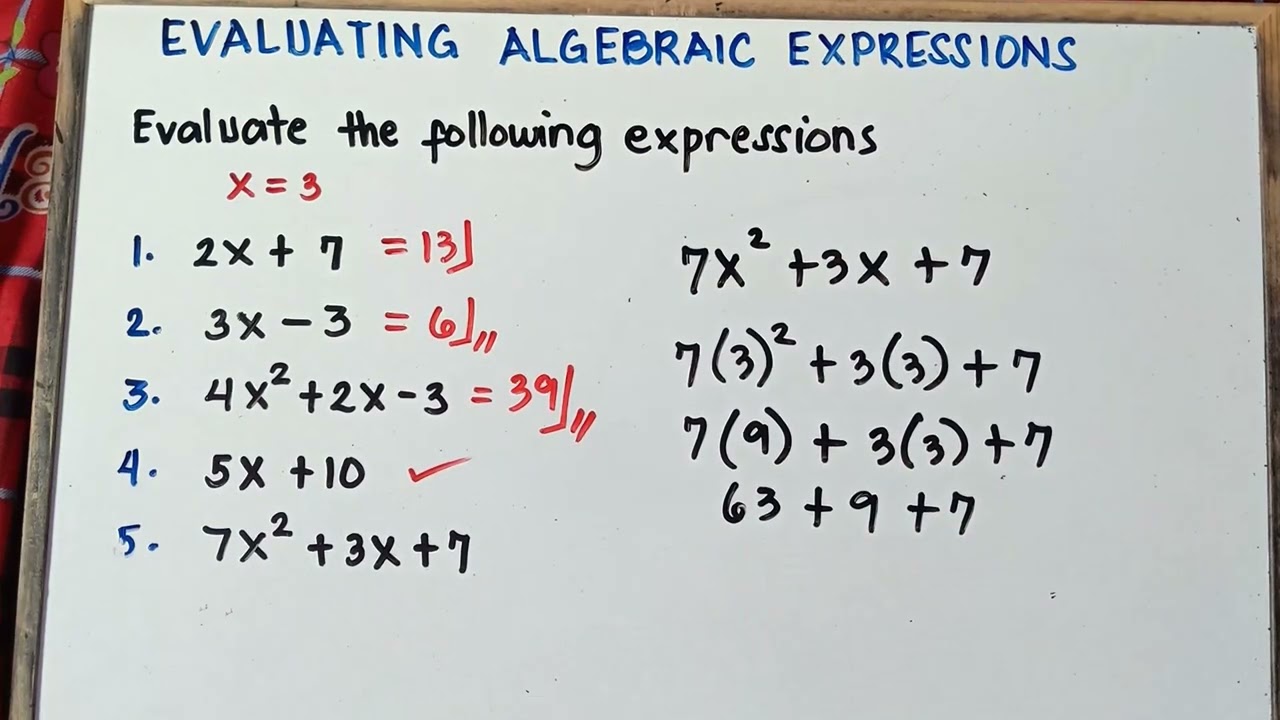 EVALUATING ALGEBRAIC EXPRESSIONS
Evaluate the following expressions
x = 3
1. 2x + 7 = 13
2. 3x - 3 = 6
3. 4x² + 2x - 3 = 39
4. 5x + 10 ✓
5. 7x² + 3x + 7
7x² + 3x + 7
7(3)² + 3(3) + 7
7(9) + 3(3) + 7
63 + 9 + 7